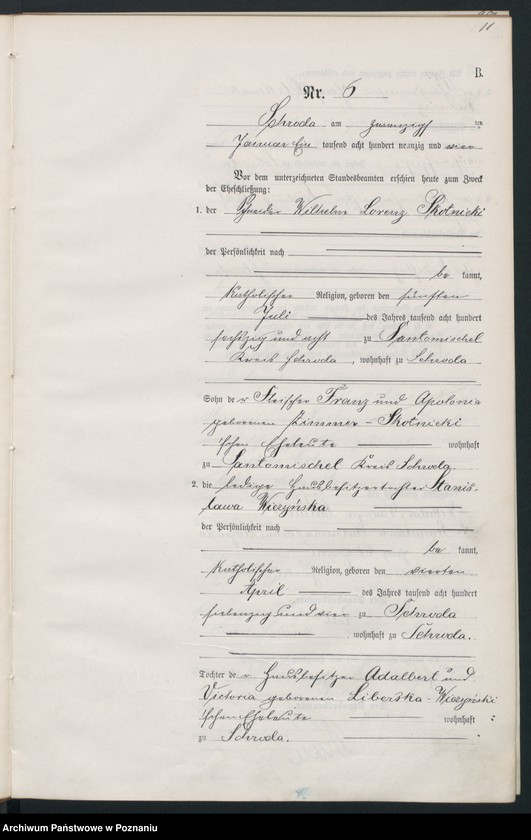 11
B.
Nr. 6
Schroda am zwanzigsten
Januar Ein tausend acht hundert neunzig und vier
Vor dem unterzeichneten Standesbeamten erschien heute zum Zweck
der Eheschließung:
1. der Schneider Wilhelm Lorenz Skotnicki
der Persönlichkeit nach
be kannt,
katholischer Religion, geboren den fünften
Juli des Jahres tausend acht hundert
sechszig und acht zu Santomischel
Kreis Schroda, wohnhaft zu Schroda
Sohn der Fleischer Franz und Apolonia
geborenen Zimmer - Skotnicki
'schen Eheleute wohnhaft
zu Santomischel Kreis Schroda.
2. die ledige Hausbesitzertochter Stanis-
lawa Wieczyńska
der Persönlichkeit nach
be kannt,
katholischer Religion, geboren den vierten
April des Jahres tausend acht hundert
siebenzig und vier zu Schroda
wohnhaft zu Schroda.
Tochter der Hausbesitzer Adalbert und
Victoria geborenen Liberska - Wieczyński
'schen Eheleute wohnhaft
zu Schroda.
Archiwum Państwowe w Poznaniu